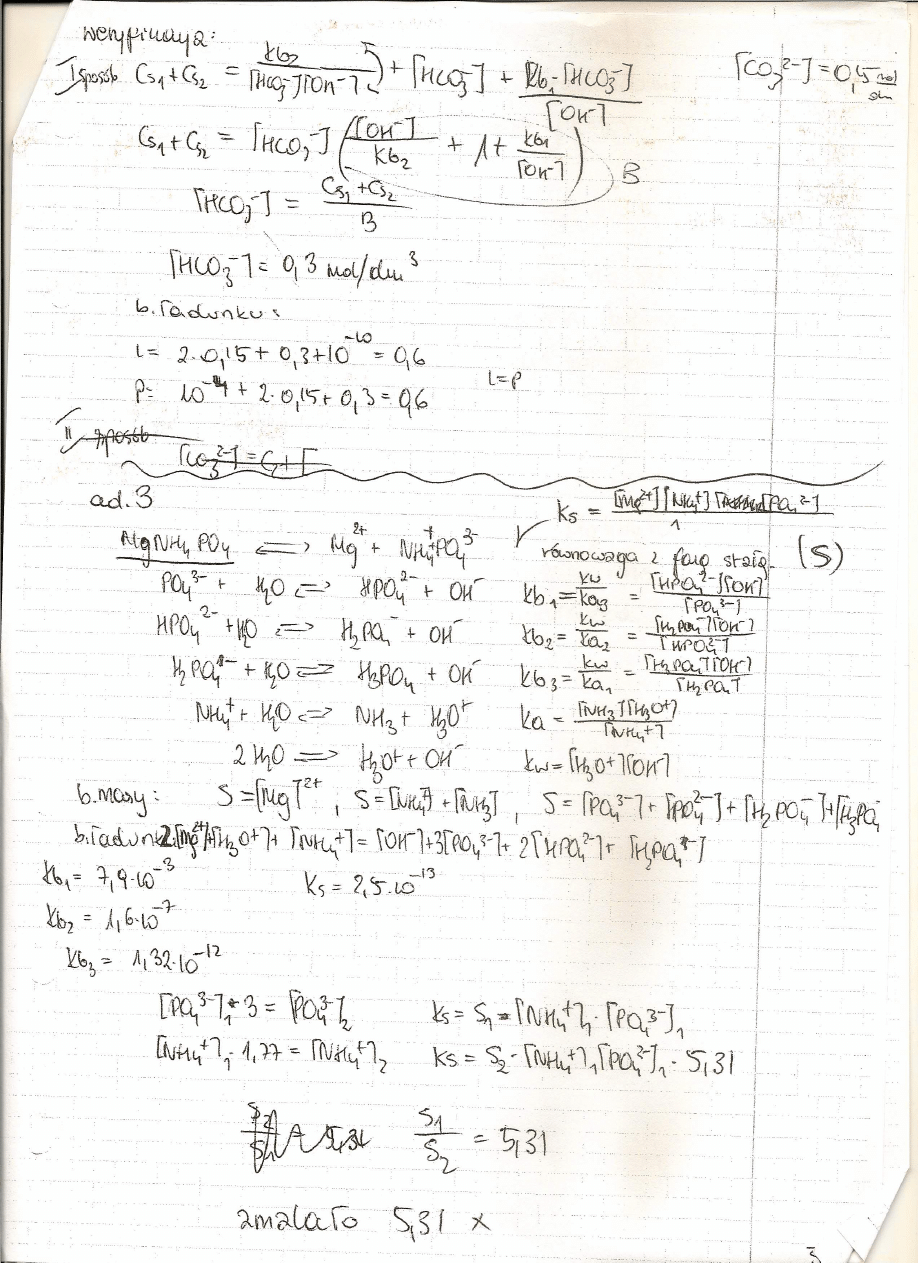 weryfikacja:
I sposób Cs₁+Cs₂ = kb₂/([HCO₃⁻][OH⁻]) + [HCO₃⁻] + kb₁·[HCO₃⁻]/[OH⁻] [CO₃²⁻] = 0,15 mol/dm
Cs₁+Cs₂ = [HCO₃⁻] ([OH⁻]/kb₂ + 1 + kb₁/[OH⁻]) B
[HCO₃⁻] = (Cs₁+Cs₂)/B
[HCO₃⁻] = 0,3 mol/dm³
b. ładunku:
l = 2·0,15 + 0,3 + 10⁻¹⁰ = 0,6
p = 10⁻⁴ + 2·0,15 + 0,3 = 0,6 l=p
II sposób
[CO₃²⁻] = C₁ + [
ad. 3 ks = [Mg²⁺][NH₄⁺][PO₄³⁻]/1
MgNH₄PO₄ ⇌ Mg²⁺ + NH₄⁺PO₄³⁻ równowaga z fazą stałą (S)
PO₄³⁻ + H₂O ⇌ HPO₄²⁻ + OH⁻ kb₁ = kw/ka₃ = [HPO₄²⁻][OH⁻]/[PO₄³⁻]
HPO₄²⁻ + H₂O ⇌ H₂PO₄⁻ + OH⁻ kb₂ = kw/ka₂ = [H₂PO₄⁻][OH⁻]/[HPO₄²⁻]
H₂PO₄⁻ + H₂O ⇌ H₃PO₄ + OH⁻ kb₃ = kw/ka₁ = [H₃PO₄][OH⁻]/[H₂PO₄⁻]
NH₄⁺ + H₂O ⇌ NH₃ + H₃O⁺ ka = [NH₃][H₃O⁺]/[NH₄⁺]
2 H₂O ⇌ H₃O⁺ + OH⁻ kw = [H₃O⁺][OH⁻]
b. masy: S = [Mg]²⁺, S = [NH₄⁺] + [NH₃], S = [PO₄³⁻] + [PO₄²⁻] + [H₂PO₄⁻] + [H₃PO₄
b. ładunk 2[Mg²⁺]+[H₃O⁺]+[NH₄⁺] = [OH⁻]+3[PO₄³⁻]+2[HPO₄²⁻]+[H₂PO₄⁻]
kb₁ = 7,9·10⁻³ Ks = 2,5·10⁻¹³
kb₂ = 1,6·10⁻⁷
kb₃ = 1,32·10⁻¹²
[PO₄³⁻]₁·3 = [PO₄³⁻]₂ ks = S₁·[NH₄⁺]₁·[PO₄³⁻]₁
[NH₄⁺]₁·1,77 = [NH₄⁺]₂ ks = S₂·[NH₄⁺]₁[PO₄³⁻]₁·5,31
S₁/S₂ = 5,31
zmalało 5,31 x
3